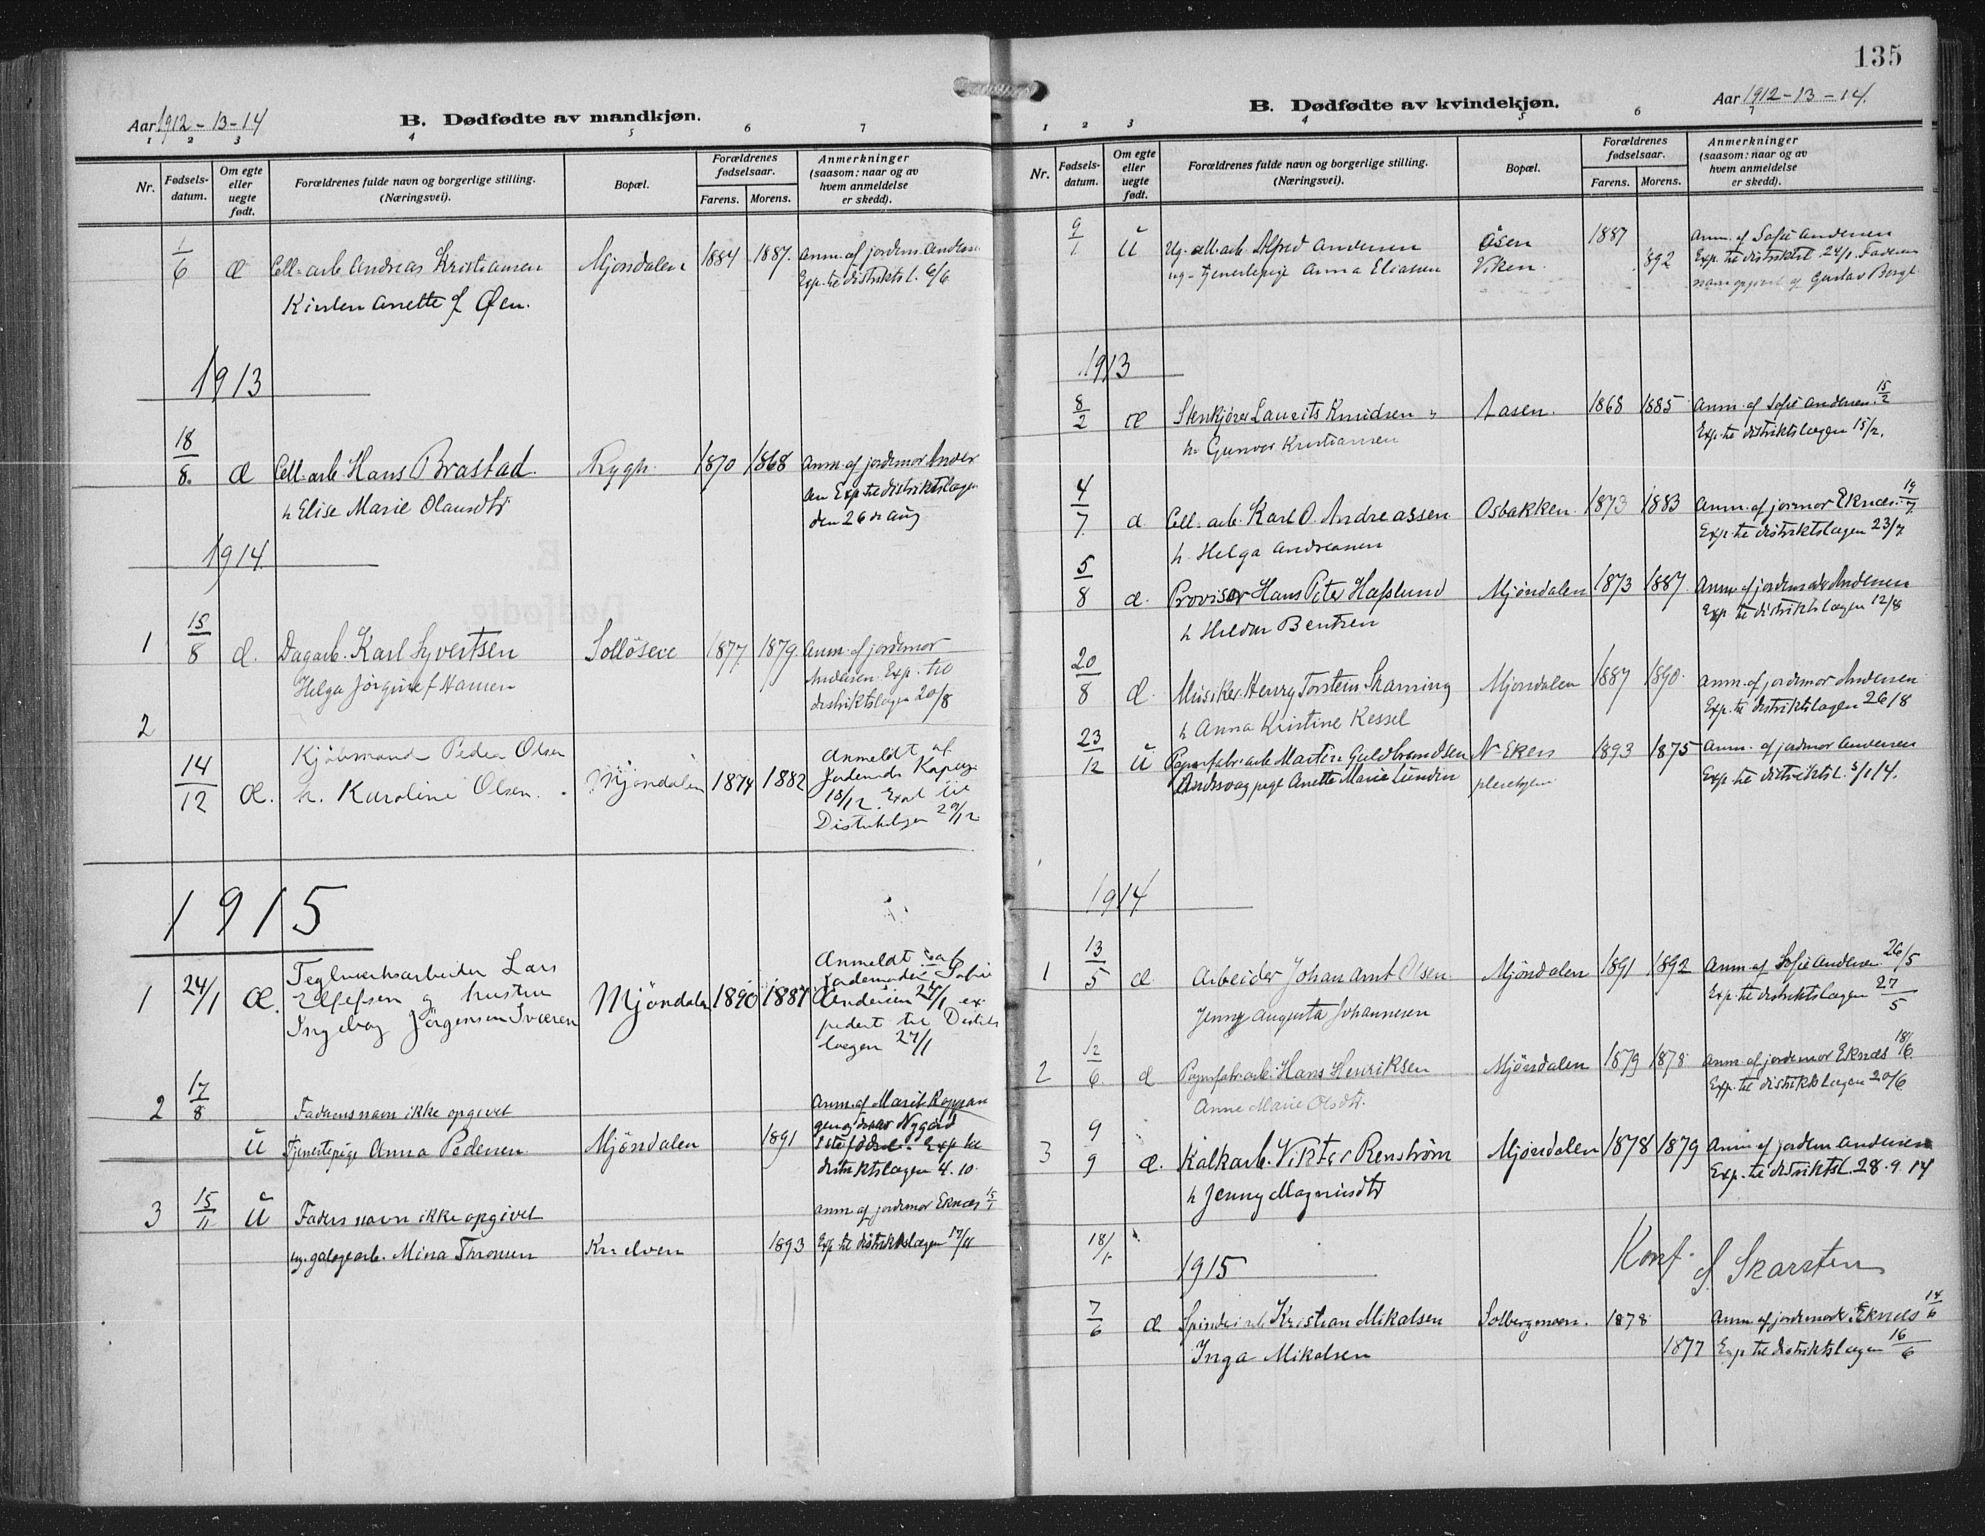 Aar 1912-13-14
B. Dødfødte av mandkjøn.
1 2 3 4 5 6 7
Nr.
Fødsels-datum.
Om egte eller uegte født.
Forældrenes fulde navn og borgerlige stilling. (Næringsvei).
Bopæl.
Forældrenes fødselsaar.
Farens. Morens.
Anmerkninger (saasom: naar og av hvem anmeldelse er skedd).
1/6 æ Cell-arb Andreas Kristiansen Mjøndalen 1884 1887. Anm. af jordem. Andersen
Kirsten Anette f Øen. Exp. til distriktsl. 6/6
1913
18/8. æ Cell-arb Hans Brastad Rygh. 1870 1868 Anm. af jordemor Ander
h Elise Marie Olausdtr sen Exp til distriktslægen
den 26 de aug
1914
1 15/8 æ. Dagarb. Karl Syvertsen Solløsere 1877 1879. Anm. af jordemor
Helga Jørgine f Hansen Andersen. Exp. til
distriktslægen 20/8
2
14/12 æ. Kjøbmand Peder Olsen Mjøndalen 1874 1882 Anmeldt af
h. Karoline Olsen. Jordemor
18/12. Exp. til
Distriktslægen 29/12
1915
1 24/1 Æ. Teglverksarbeider Lars Mjøndalen 1890 1887 Anmeldt af
Ellefsen og hustru Jordemoder Sofie
Ingeborg Jørgensen Andersen 27/1 ex-
pedert til Distrikts
lægen 27/1
2 17/8 Faderens navn ikke opgivet Anm. af Marit Roppan
ü Tjenestepige Anna Pedersen Mjøndalen 1891 Exp. til
distriktslægen 4.10
3 15/11 ü Faders navn ikke opgivet Anm af jordemor Eknæs
Mina Thronsen Knelven 1893 Exp til distriktslægen 17/11
135
B. Dødfødte av kvindekjøn.
Aar 1912-13-14.
1 2 3 4 5 6 7
Nr.
Fødsels-datum.
Om egte eller uegte født.
Forældrenes fulde navn og borgerlige stilling. (Næringsvei).
Bopæl.
Forældrenes fødselsaar.
Farens. Morens.
Anmerkninger (saasom: naar og av hvem anmeldelse er skedd).
9/1 ü Ug. cell-arb. Alfred Andersen Åsen 1887 Anm. af Sofie Andersen
ug. tjenestepige Anna Eliasen Viken. 892 Exp. til distriktsl. 24/1. Faderens
navn opgivet af Gustav Berg
1913
8/2 æ Laurits Knudsen Aasen. 1868 1885 Anm. af Sofie Andersen. 15/2
h Gunvor Kristiansen Exp. til distriktslægen 15/2.
4/7 æ Cell. arb. Karl O. Andreassen Osbakken 1873 1883 Anm. af jormor Eknæs. 19/7
h. Helga Andreasen Exp. til distriktslægen 23/7
5/8 æ. Provisor Hans Peter Hafslund Mjøndalen 1873 1887. Anm. af jordemor Andersen
h Hilda Bentzen Exp. til distriktslægen 12/8
20/8 æ. Musiker Henry Torstein Skarning Mjøndalen 1887 1890. Anm. af jordemor Andersen
h Anna Kristine Kessel Exp. til distriktslægen 26/8
23/12 ü Papirfabr-arb Martin Guldbrandsen N-Eker 1893 1875 Anm. af jordmor Andersen
pige Anette Marie Exp. til distriktsl. 5/1 14.
1914
1 13/5 æ. Arbeider Johan Arnt Olsen. Mjøndalen 1891 1892 Anm. af Sofie Andersen. 26/5
Jenny Augusta Johannesen Exp. til distriktslægen 27/5
2 12/6. æ Papirfabr-arb. Hans Henriksen Mjøndalen 1879 1878 Anm. af jordemor Eknæs 18/6
Anne Marie Olsdtr. Exp. til distriktslægen 20/6
3 9/9 æ. Kalkarb. Viktor Renstrøm Mjøndalen 1878 1879 Anm af jordem Andersen
h Jenny Magnusdtr Exp. til distriktsl. 28.9.14
18/1. Konf. f. Skarsten
1915
7/6 æ Kristian Mikalsen Solbergmoen. 1878 Anm. af jordemor Eknæs 14/6
Inga Mikalsen 1877 Exp til distriktslægen 16/6